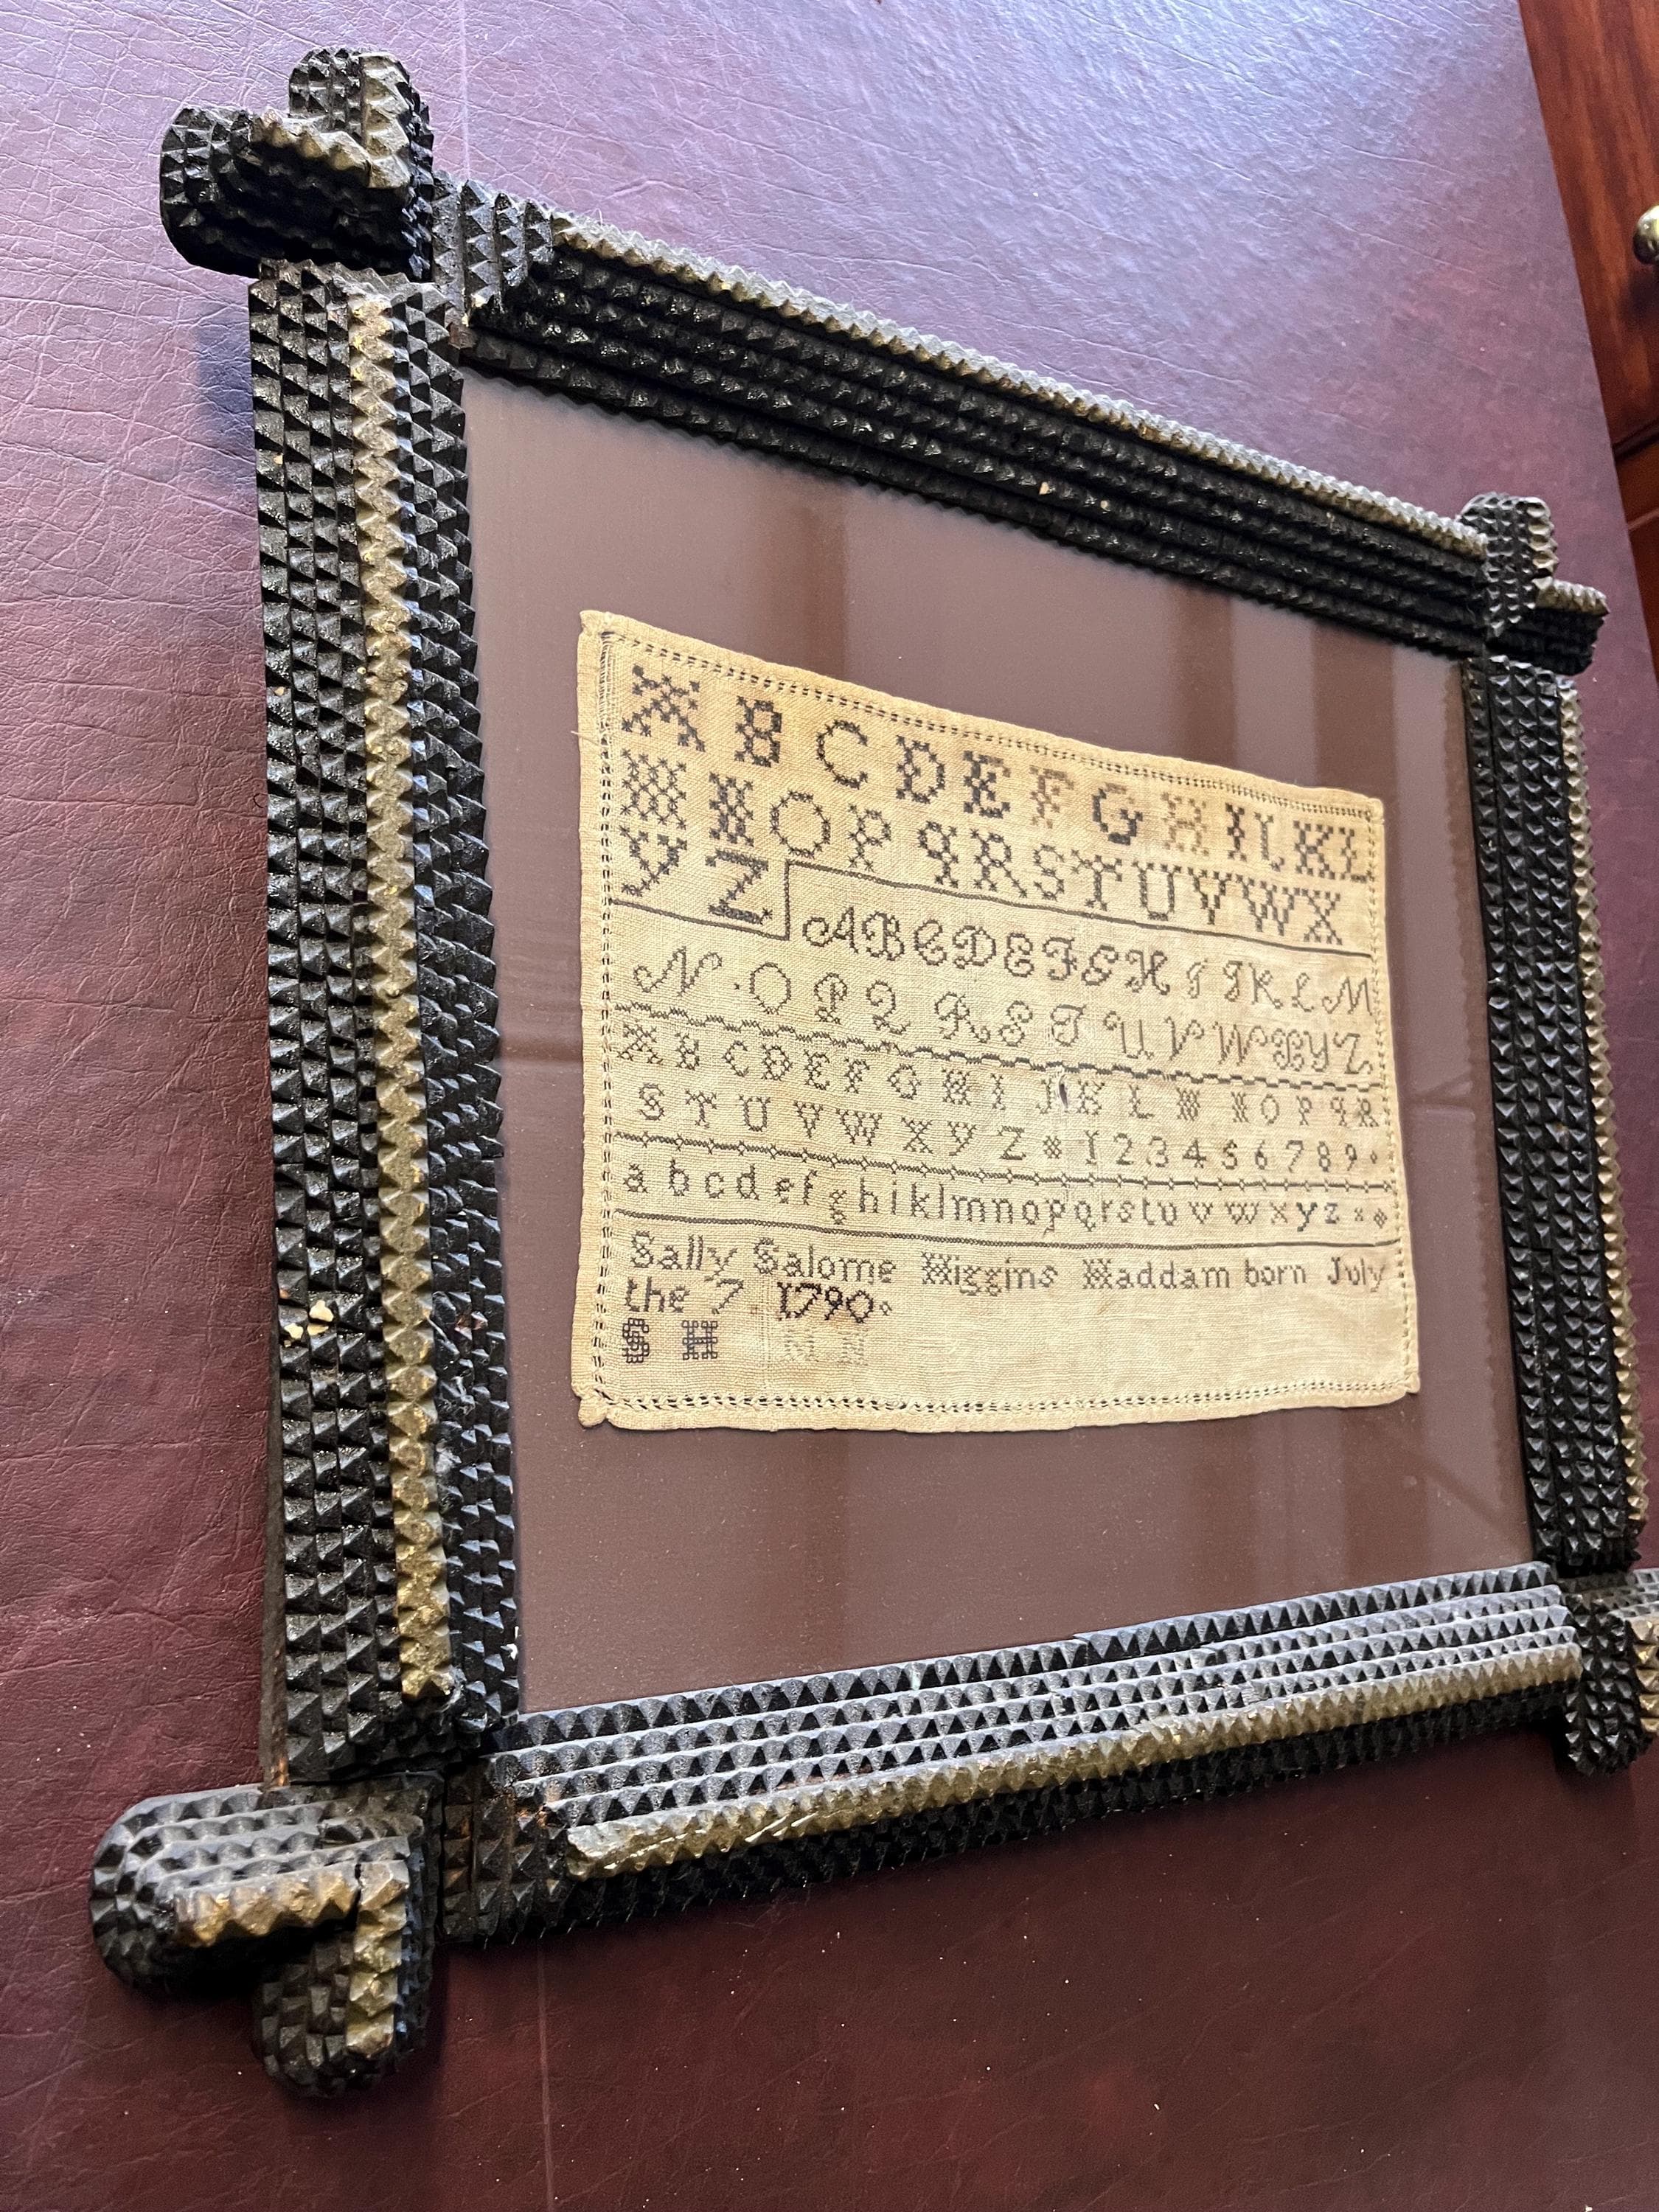 A B C D E F G H I J K L
M N O P q R S T U V W X
Y Z A B C D E F G H I J K L M
N . O P Q R S T U V W X Y Z
A B C D E F G H I J K L M N O P q R
S T U V W X Y Z 1 2 3 4 5 6 7 8 9
a b c d e f g h i k l m n o p q r s t u v w x y z
Sally Salome Higgins Haddam born July
the 7 1790
S H M N